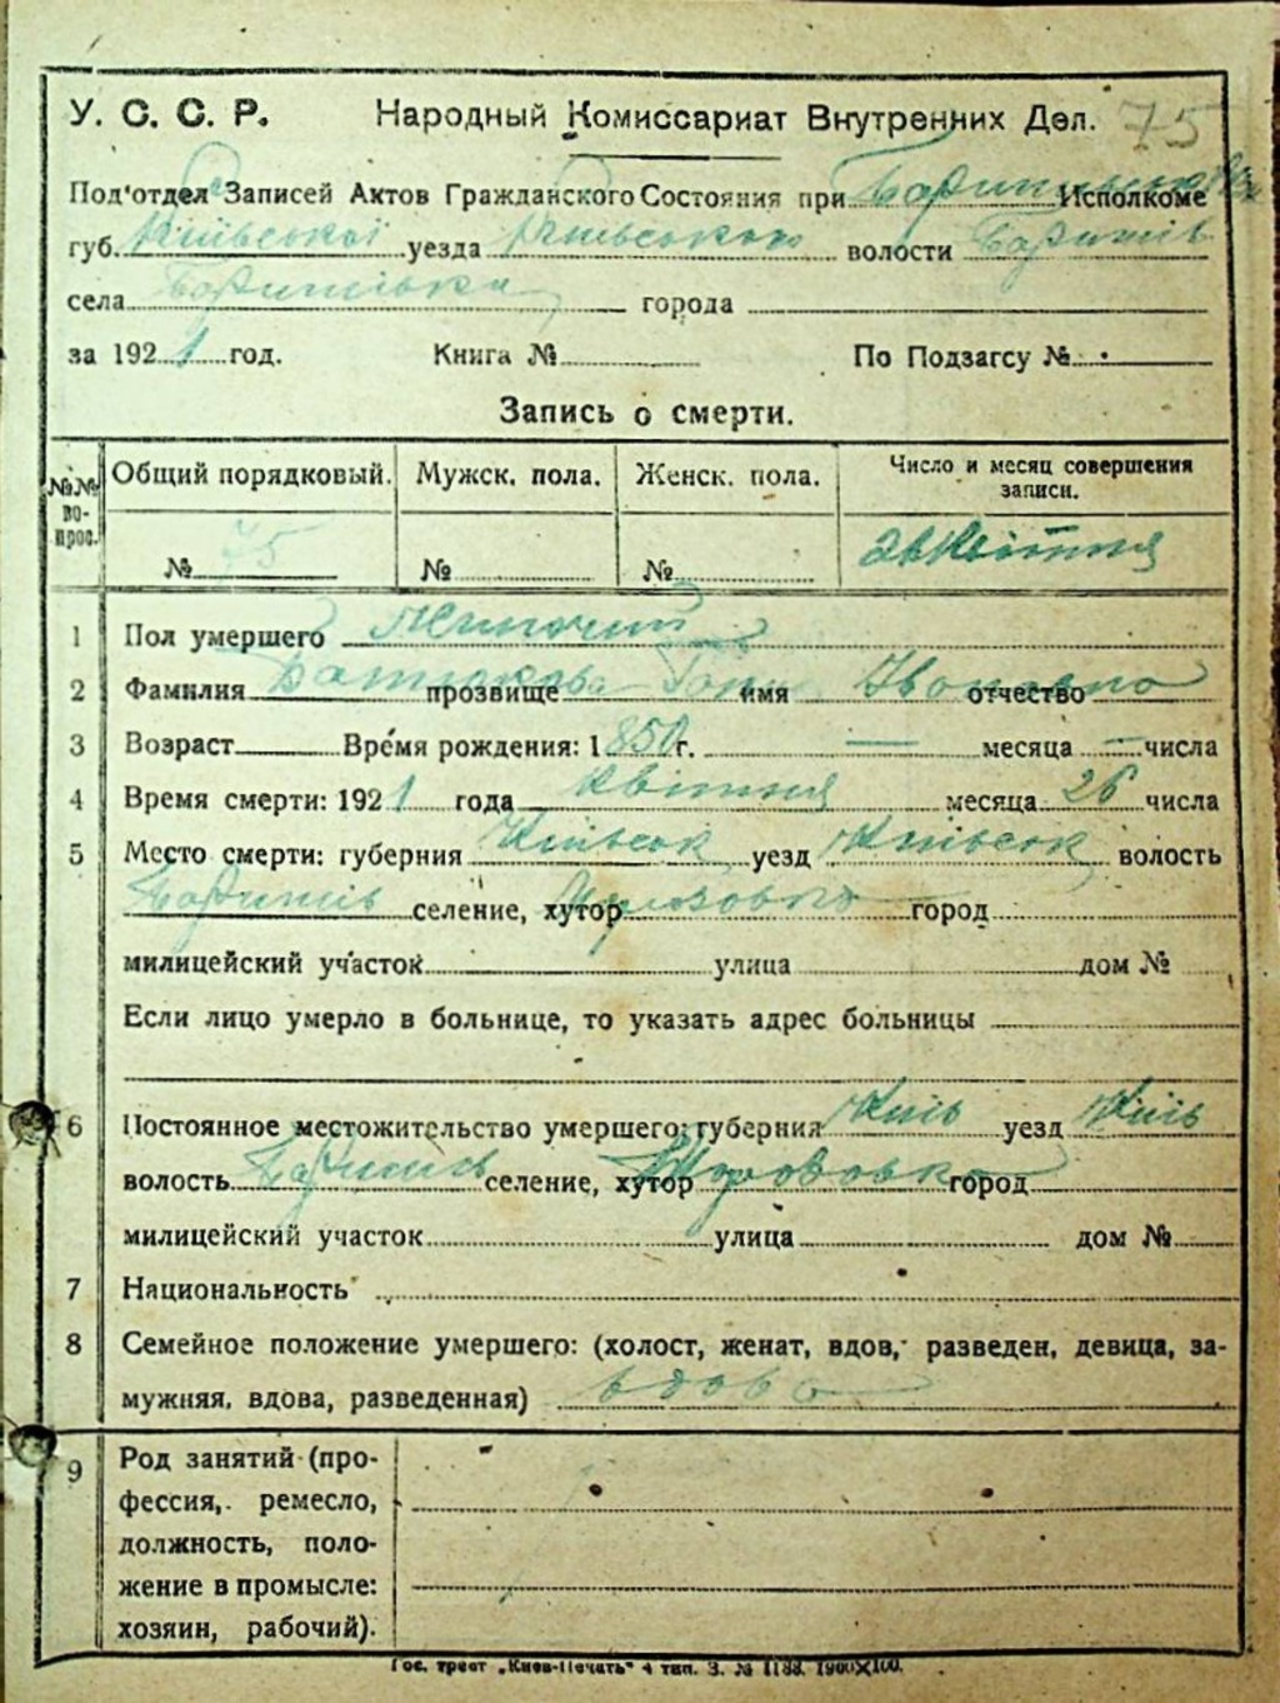 У. С. С. Р. Народный Комиссариат Внутренних Дел. 75
Под'отдел Записей Актов Гражданского Состояния при Исполкоме
губ. Київської уезда Київського волости Баришів
села Баришівка города
за 1921 год. Книга № По Подзагсу №
Запись о смерти.
№№ вопрос. Общий порядковый. Мужск. пола. Женск. пола. Число и месяц совершения записи.
№ 75 № № Квітня
1 Пол умершего Жиночий
2 Фамилия прозвище имя Ивановна отчество
3 Возраст Время рождения: 1850 г. — месяца — числа
4 Время смерти: 1921 года квітня месяца 26 числа
5 Место смерти: губерния Київськ уезд Київськ волость
Баришів селение, хутор город
милицейский участок улица дом №
Если лицо умерло в больнице, то указать адрес больницы
6 Постоянное местожительство умершего: губерния Київ уезд Київ
волость Баришів селение, хутор город
милицейский участок улица дом №
7 Национальность
8 Семейное положение умершего: (холост, женат, вдов, разведен, девица, за-
мужняя, вдова, разведенная) вдова
9 Род занятий (про-
фессия, ремесло,
должность, поло-
жение в промысле:
хозяин, рабочий).
Гос. трест „Киев-Печать" 4 тип. З. № 1133. 1900X100.